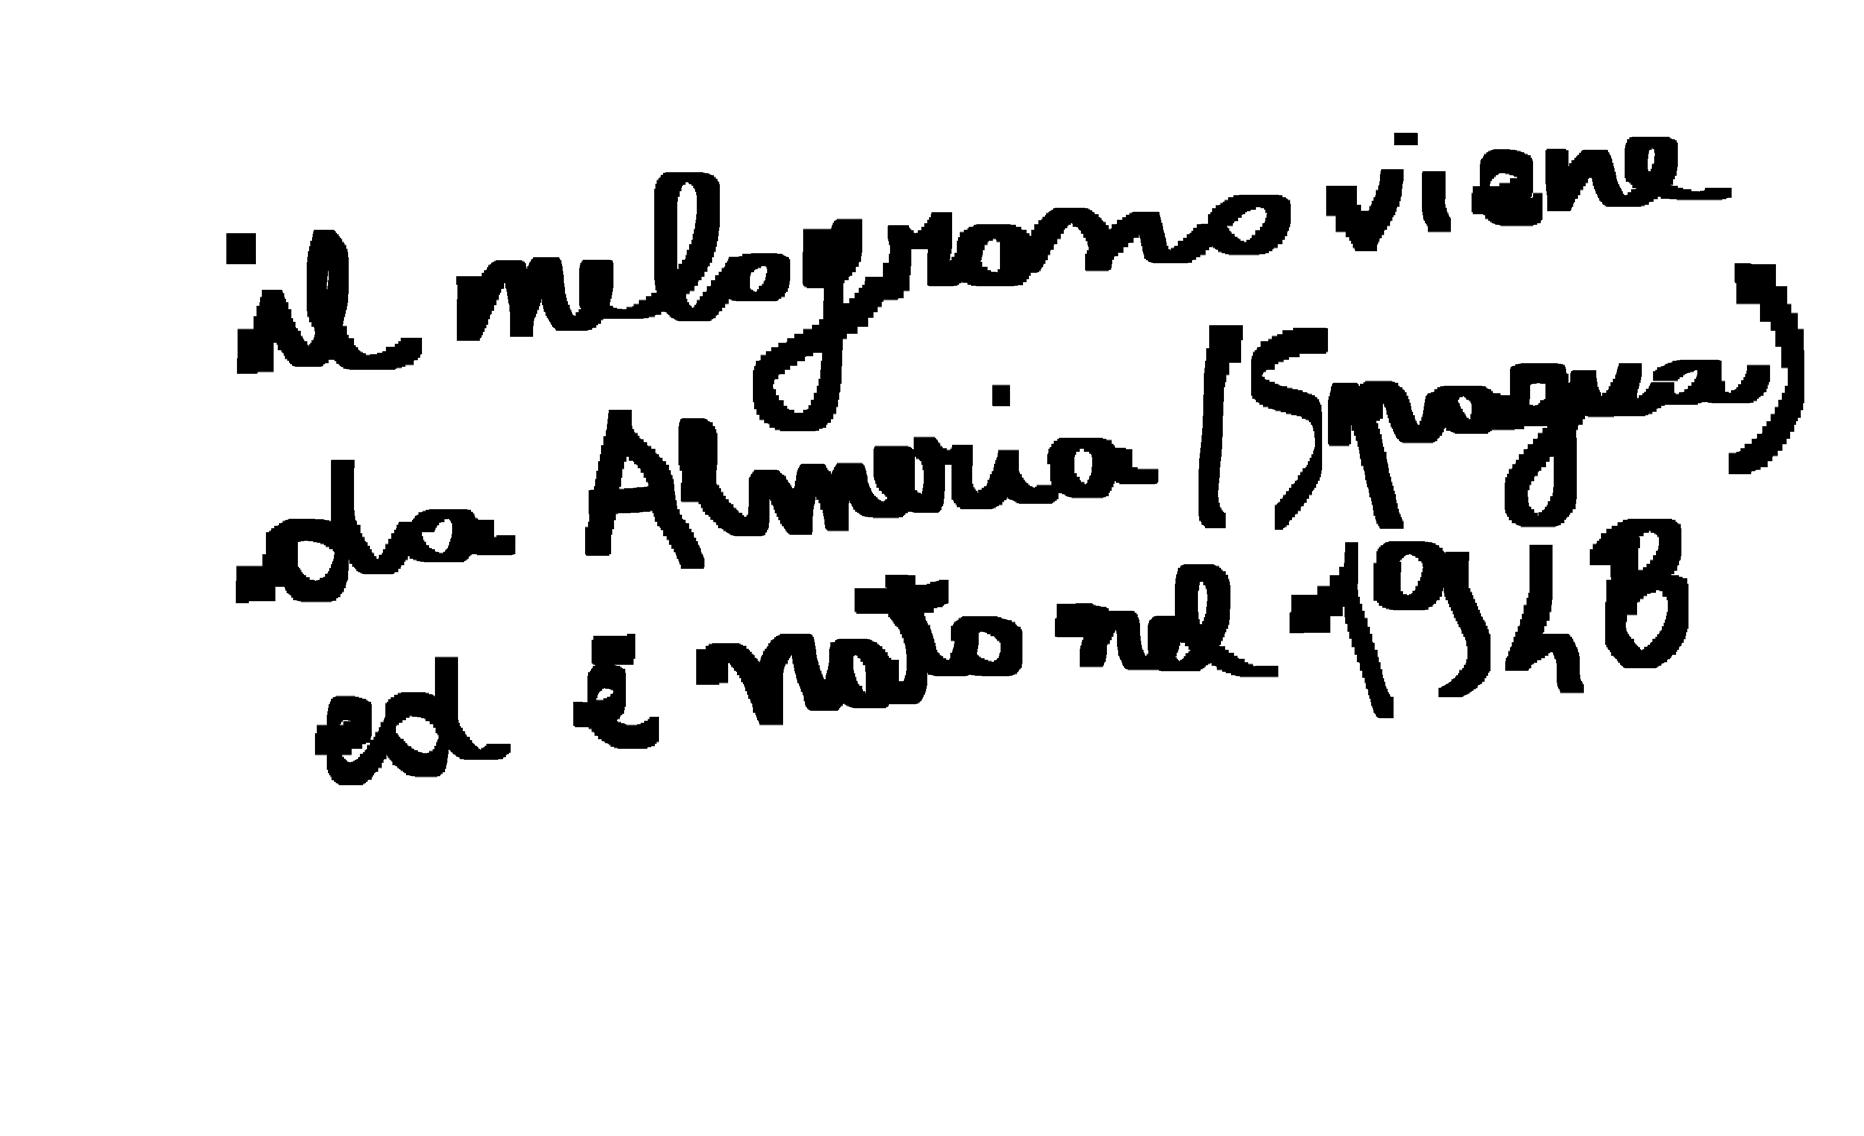 il melograno viene
da Almeria (Spagna)
ed è nato nel 1948